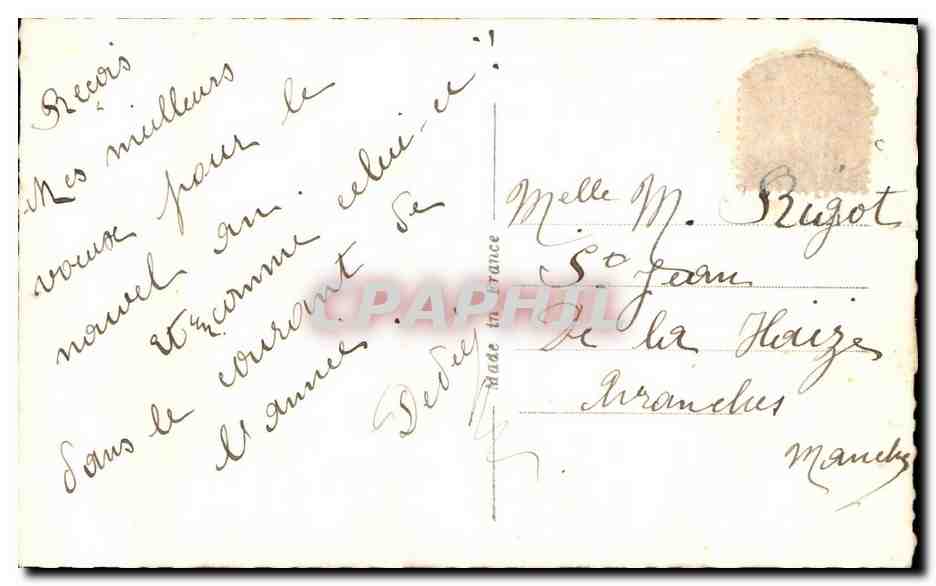 Reçois
Mes meilleurs
voeux pour le
nouvel an.
et comme celui-ci !
dans le courant de
l'année.
Dédé
Made in France
CPAPHIL
Melle M. Rigot
St Jean
De la Haize
Avranches
Manche